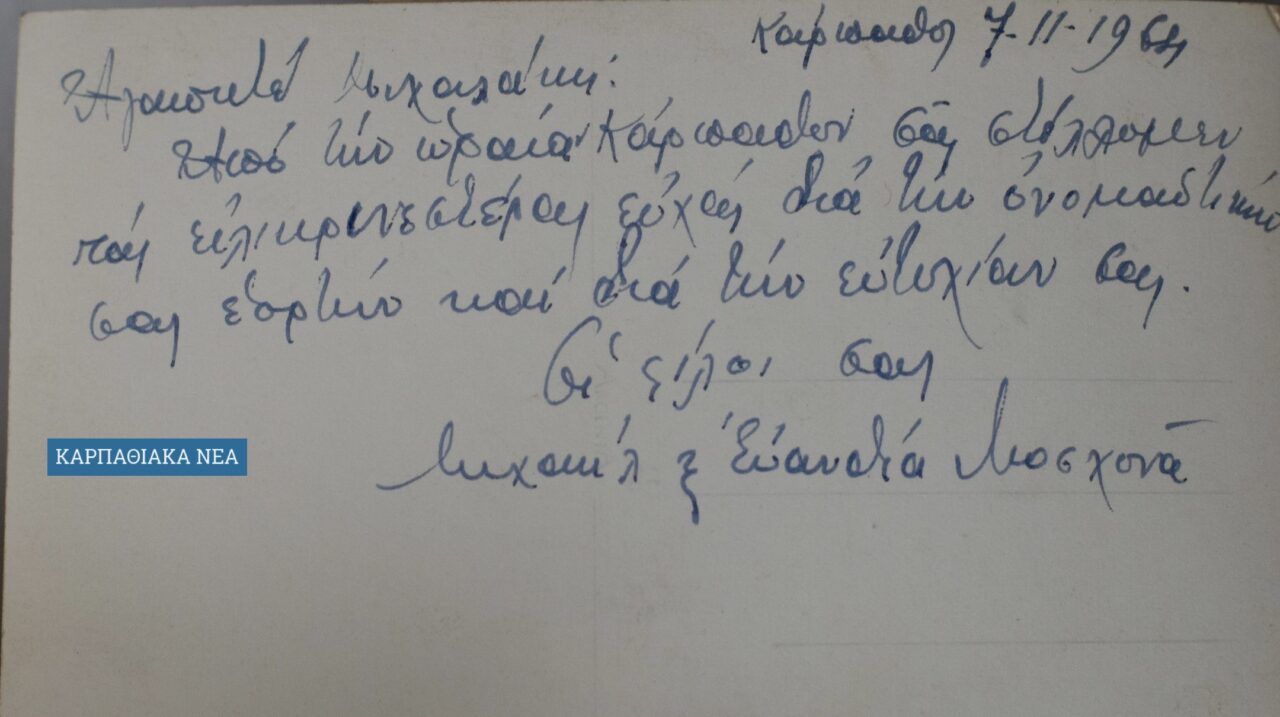 Κάρπαθος 7-11-1964
Ἀγαπητέ Μιχαλάκη:
Ἀπό τήν ὡραίαν Κάρπαθον σᾶς στέλλομεν
τάς εἰλικρινεστέρας εὐχάς διά τήν ὀνομαστικήν
σας ἑορτήν καί διά τήν εὐτυχίαν σας.
Οἱ φίλοι σας
Μιχαήλ ξ Εὐανθία Μοσχονᾶ
ΚΑΡΠΑΘΙΑΚΑ ΝΕΑ